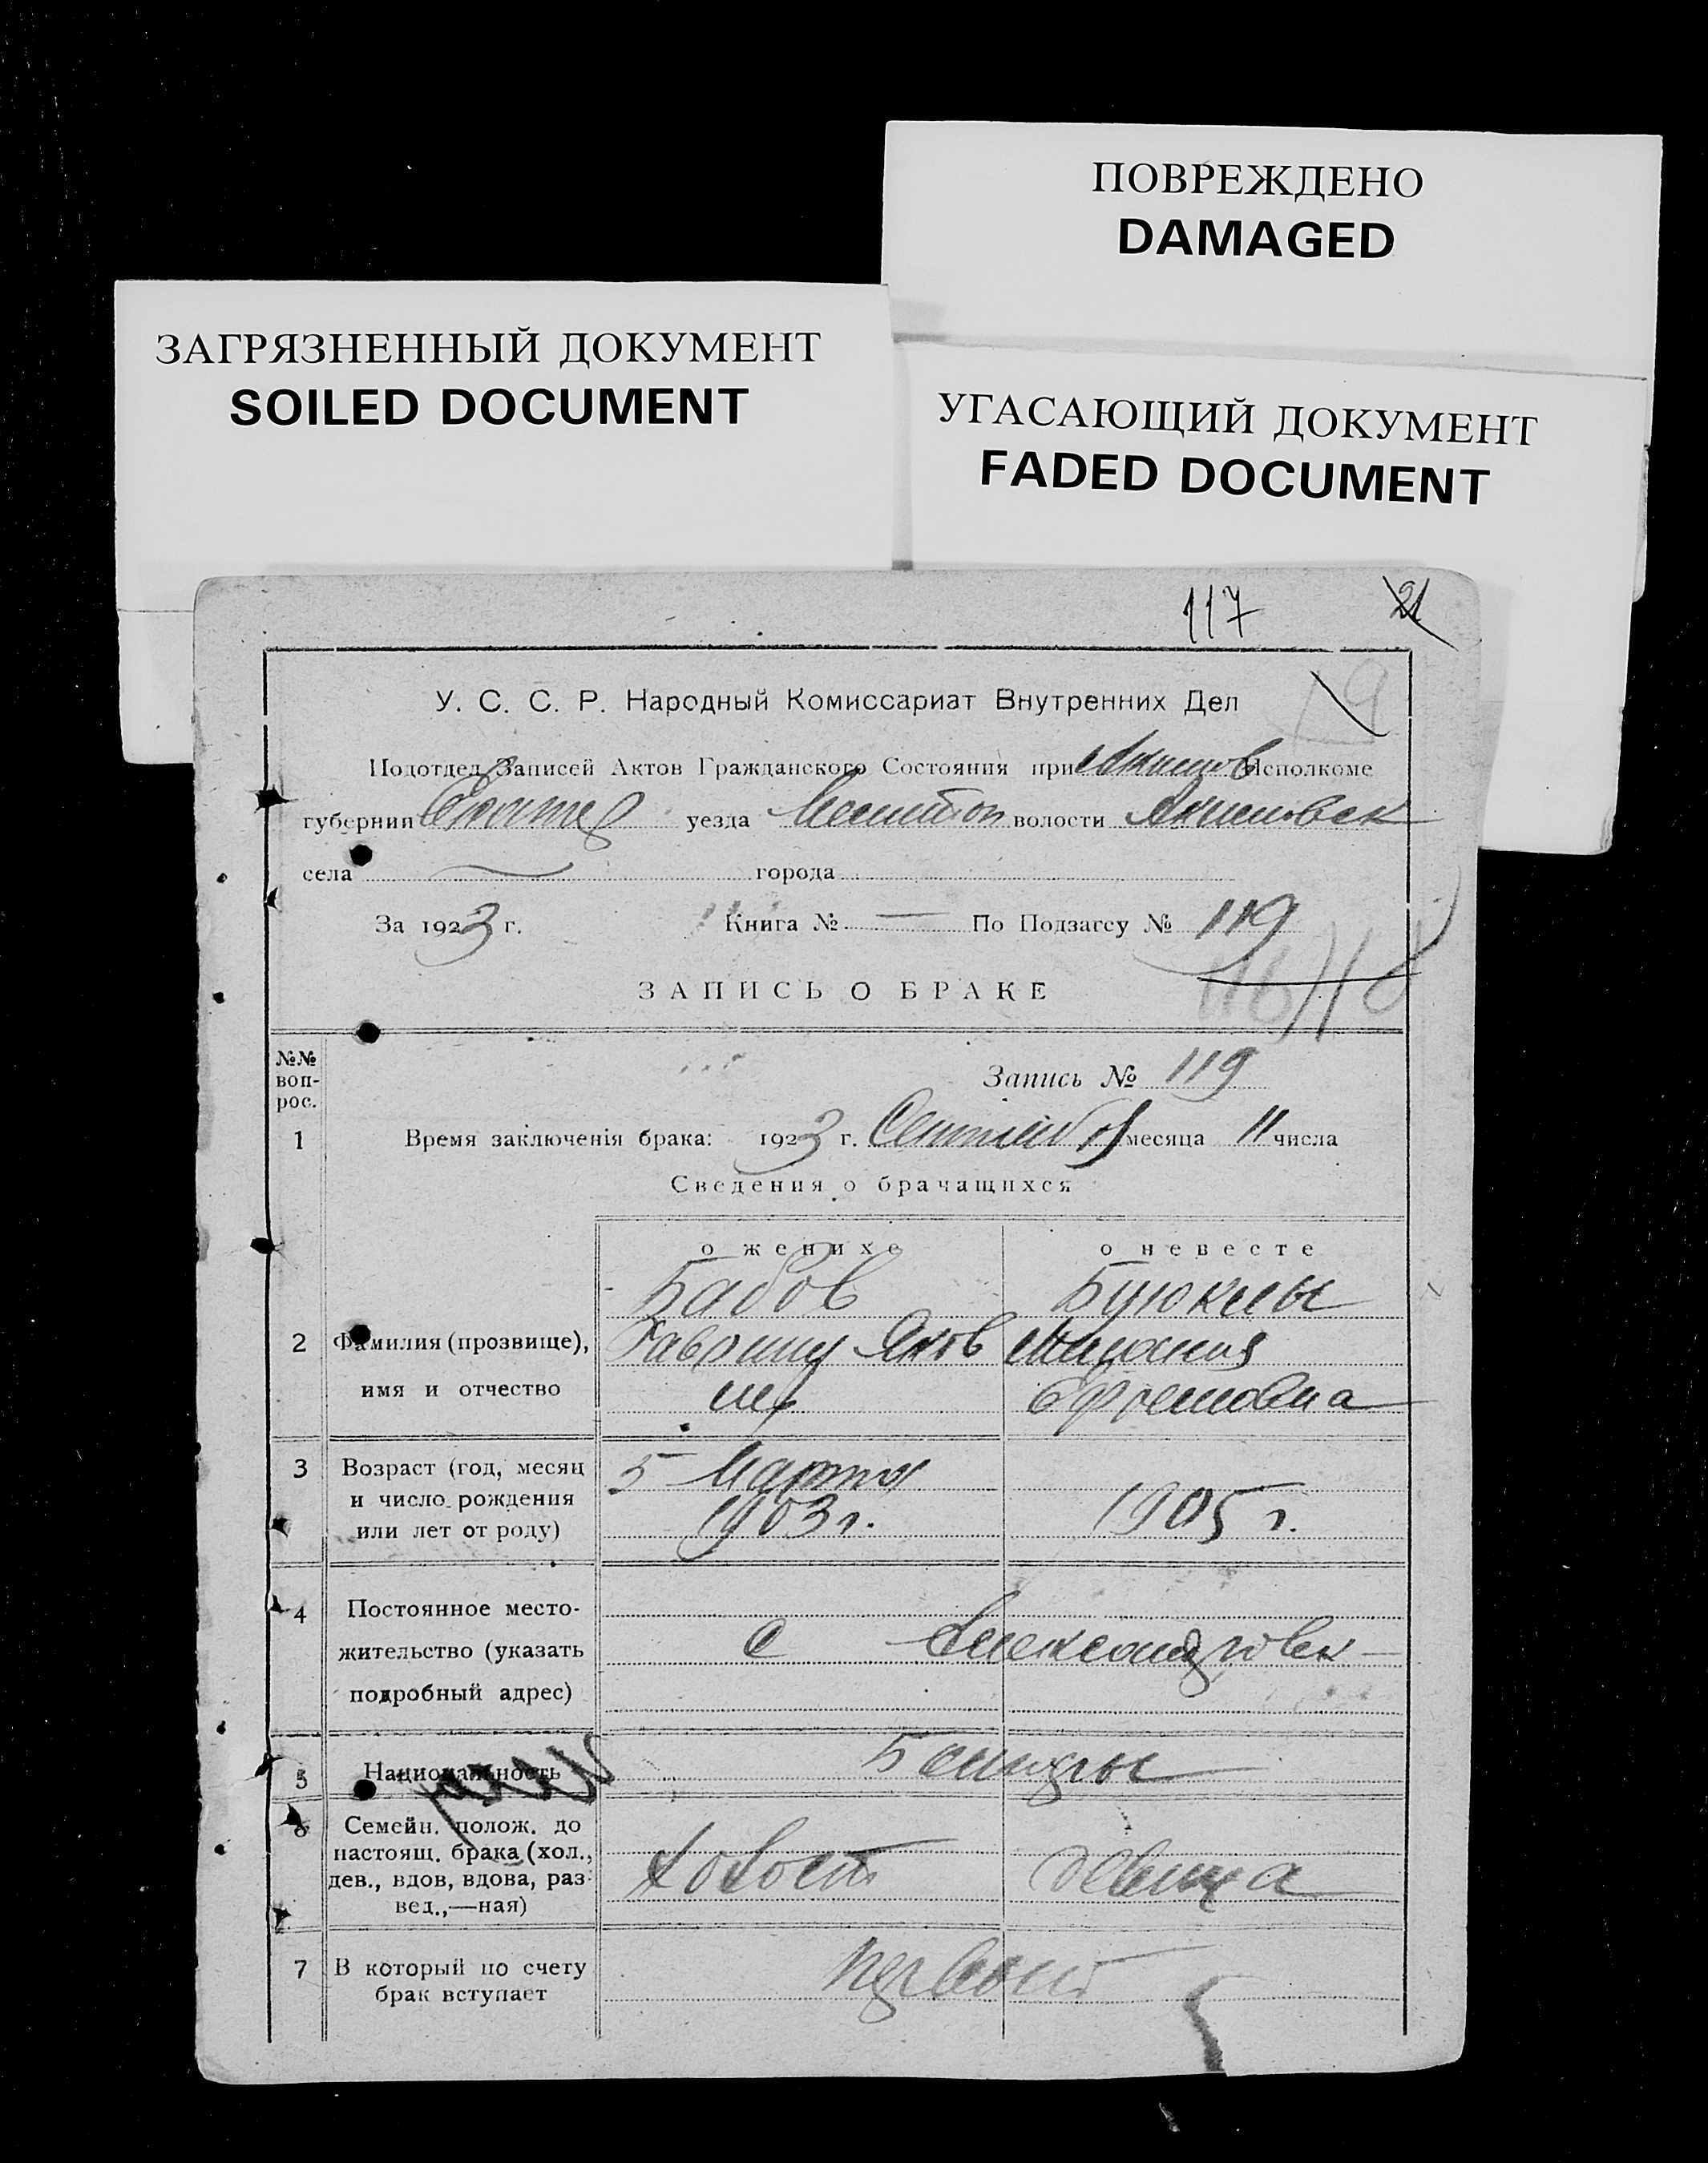 ПОВРЕЖДЕНО
DAMAGED
ЗАГРЯЗНЕННЫЙ ДОКУМЕНТ
SOILED DOCUMENT
УГАСАЮЩИЙ ДОКУМЕНТ
FADED DOCUMENT
117 21
У. С. С. Р. Народный Комиссариат Внутренних Дел 19
Подотдел Записей Актов Гражданского Состояния при Акимов Исполкоме
губернии Екатер уезда Мелитоп волости Акимовск
села города
За 1923 г. Книга № — По Подзагсу № 119
116
ЗАПИСЬ О БРАКЕ
№№ воп-рос.
Запись № 119
1 Время заключенія брака: 1923 г. Сентября месяца 11 числа
Сведения о брачащихся
о женихе о невесте
Бабов Буюклы
2 Фамилия (прозвище), Гавриил Яков
имя и отчество Ефремовна
3 Возраст (год, месяц 5 Марта
и число рождения 1903 г. 1905 г.
или лет от роду)
4 Постоянное место-
жительство (указать С Александровк
подробный адрес)
5 Национальность
6 Семейн. полож. до
настоящ. брака (хол., Холост девица
дев., вдов, вдова, раз-
вед.,—ная)
7 В который по счету Первый
брак вступает